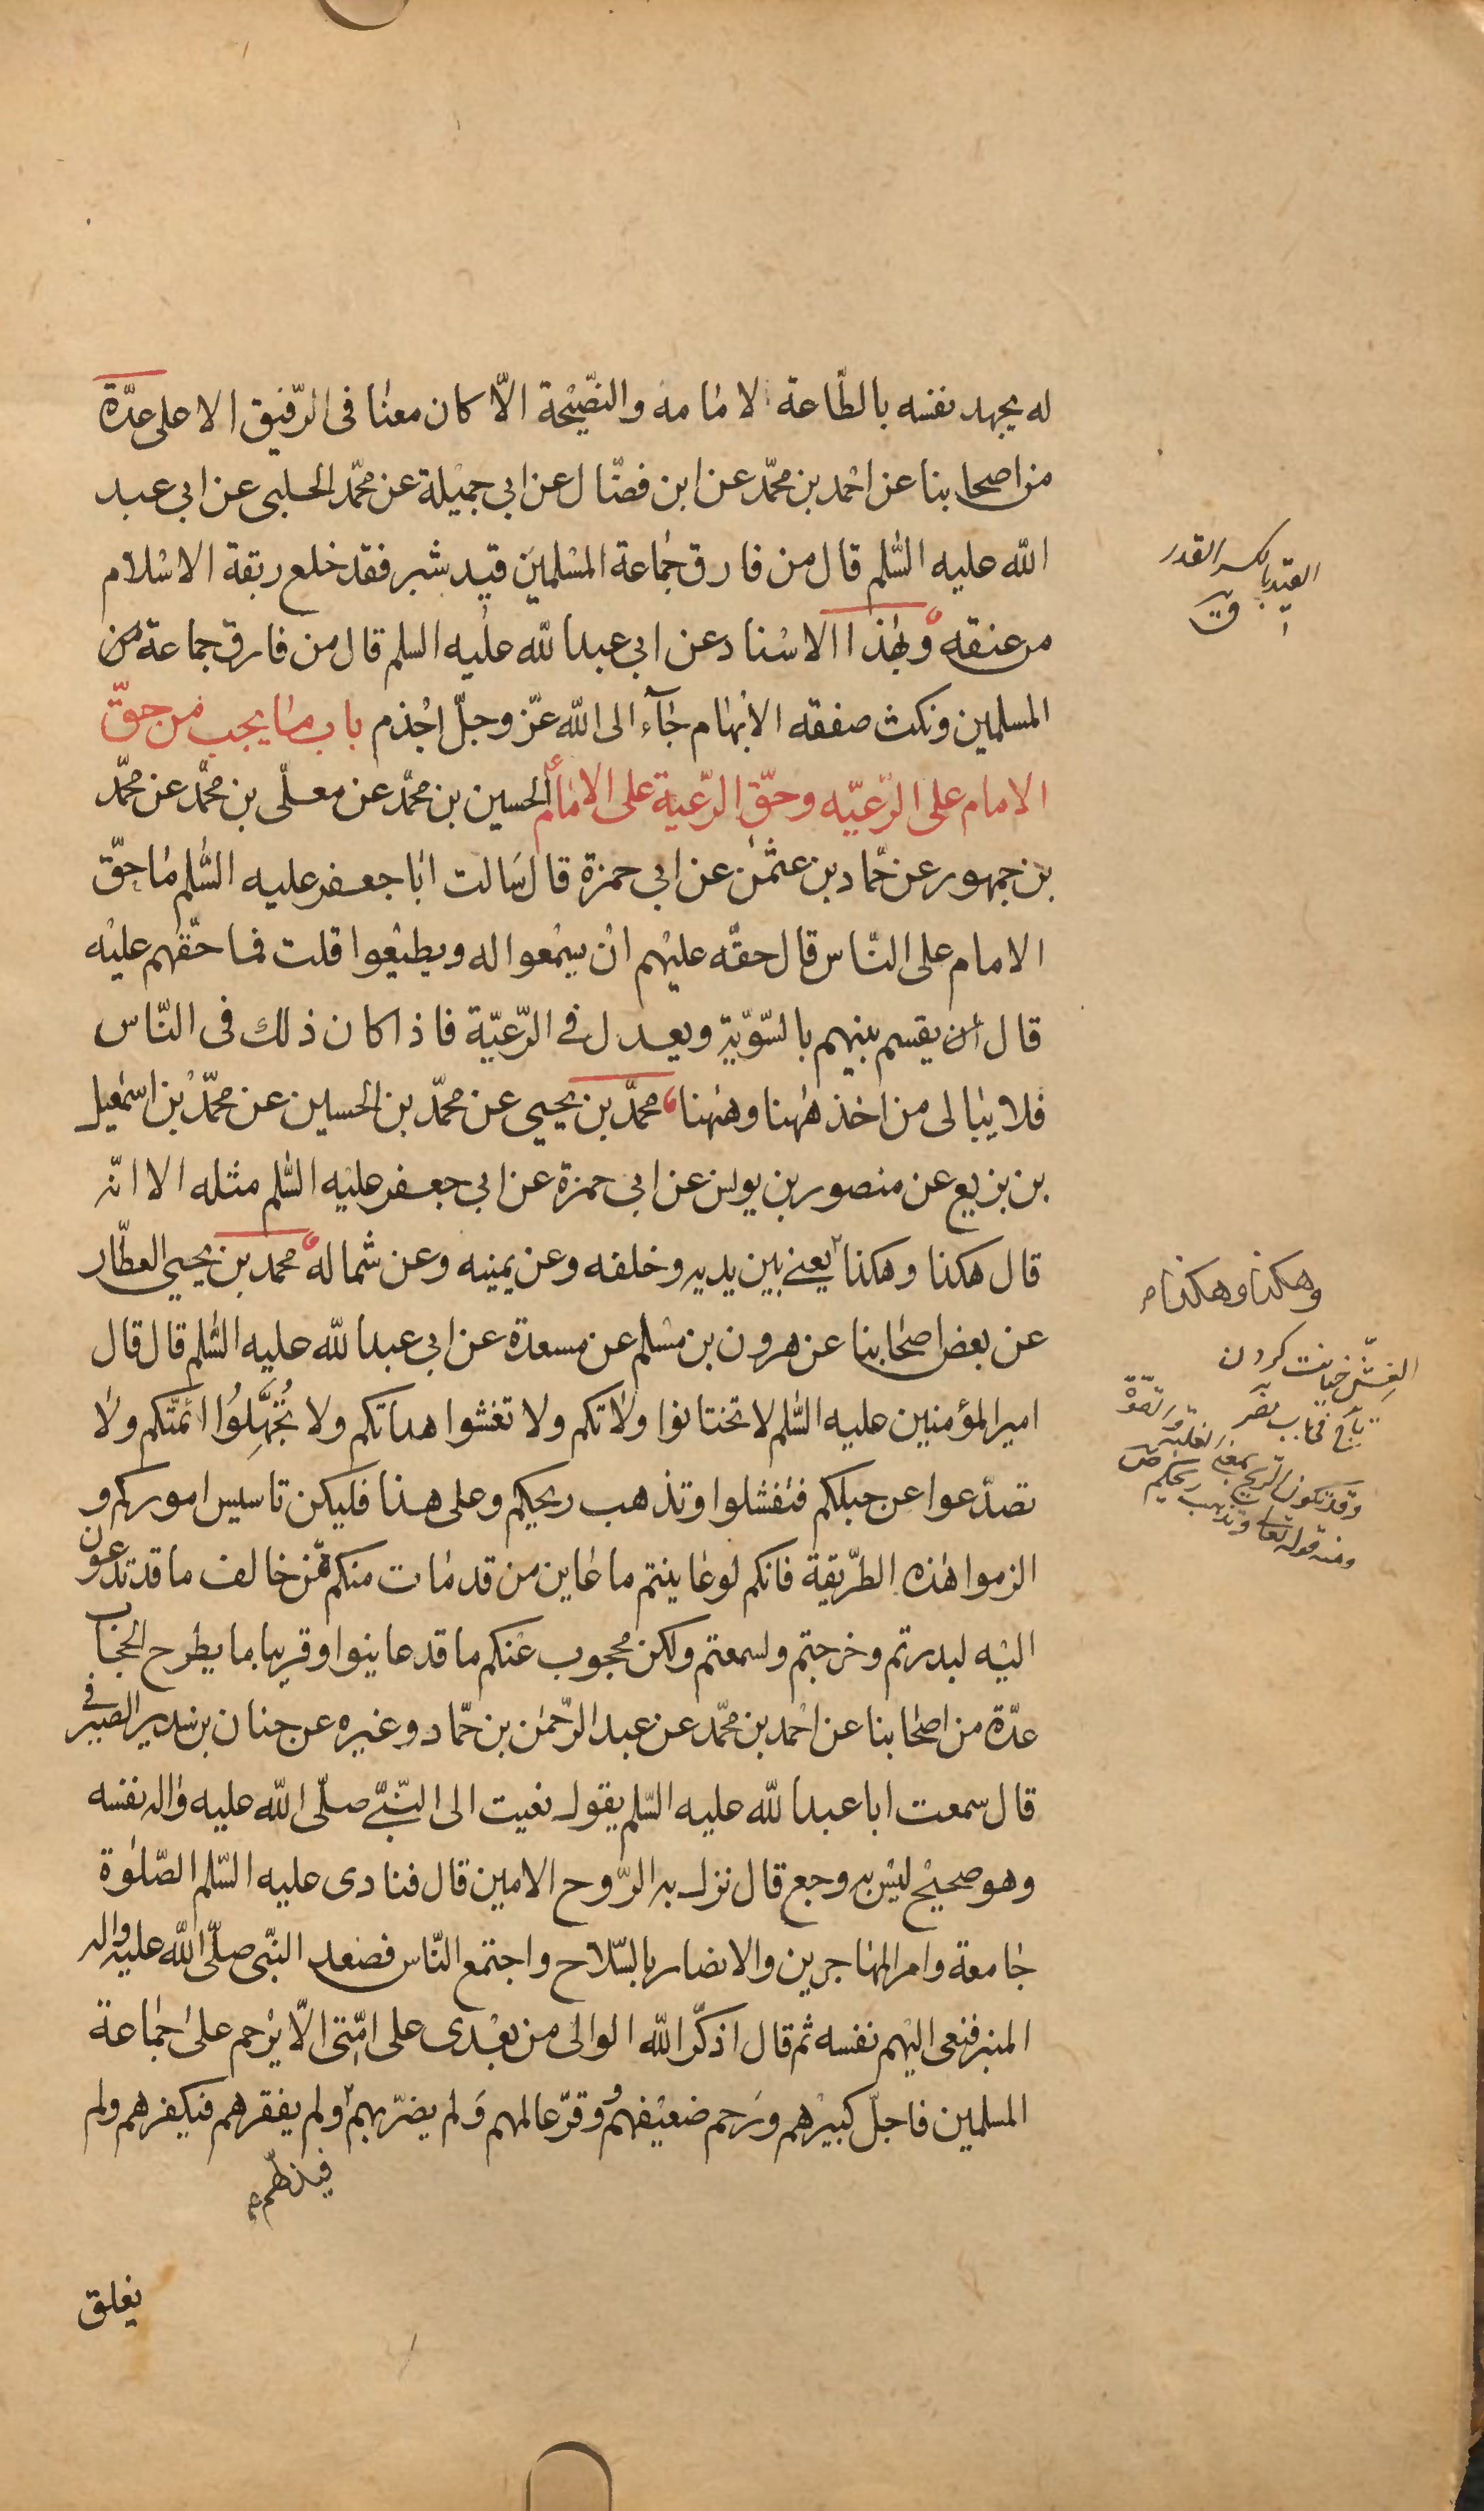 له يجهد نفسه بالطّاعة لامامه والنصّيْحة الاّ كان معنا فى الرّفيق الاعلى عدّة
من اصحابنا عن احمد بن محمّد عن ابن فضّال عن ابي جميْلة عن محمّد الحلبى عن ابى عبد
الله عليه السّلم قال من فارق جماعة المسْلمين قيد شبر فقد خلع ربقة الاسْلام
من عنقه وبهٰذا الاسْناد عن ابى عبد الله عليه السلم قال من فارق جماعة من
المسلمين ونكث صفقه الابهام جآء الى الله عزّ وجلّ اجْذم باب ما يجب من حقّ
الامام على الرّعيّه وحقّ الرّعية على الامام الحسين بن محمّد عن معلّى بن محمّد عن محمّد
بن جمهور عن حمّاد بن عثمٰن عن ابى حمزة قال سَالت ابا جعفر عليه السّلم ما حقّ
الامام على النّاس قال حقّه عليْهم انْ يسْمعوا له ويطيْعوا قلت فما حقّهم عليْه
قال ان يقسم بينهم بالسّوّية ويعدل فى الرّعيّة فاذا كان ذلك فى النّاس
فلا يبالى من اخذ هٰهنا وهٰهنا محمّد بن يحيى عن محمّد بن الحسين عن محمّد بْن اسمٰعيل
بن بزيع عن منصور بن يونس عن ابى حمزة عن ابى جعفر عليْه السّلم مثله الا انّه
قال هكذا وهكذا يعنى بين يديه وخلفه وعن يمينه وعن شماله محمد بن يحيى العطّار
عن بعض اصحابنا عن هرون بن مسْلم عن مسعدة عن ابى عبد الله عليه السّلم قال قال
امير المؤمنين عليه السّلم لا تختانوا ولاتكم ولا تغشوا هداتكم ولا تُجَهِّلُوا ائمّتكم ولا
تصدّعوا عن حبلكم فتفشلوا وتذهب ريحيكم وعلى هذا فليكن تاسيس اموركم و
الزموا هٰذه الطّريقة فانكم لو عاينتم ما عاين من قد مات منكم ممّن خالف ما قد تدعون
اليْه لبدرتم وخرجتم ولسمعتم ولكن محجوب عنْكم ما قد عاينوا وقريبا ما يطرح الحجاب
عدّة من اصحابنا عن احْمد بن محمّد عن عبد الرّحمٰن بن حمّاد وغيره عن حنان بن سدير الصيرفى
قال سمعت ابا عبد الله عليه السّلم يقول نعيت الى النّبىّ صلّى الله عليه واله نفسه
وهو صحيْح ليْس به وجع قال نزل به الرّوح الامين قال فنادى عليه السّلم الصّلوٰة
جٰامعة وامر المهاجرين والانصار بالسّلاح واجتمع النّاس فصعد النبّى صلّى الله عليه واله
المنبر فنعى اليْهم نفسه ثم قال اذكّر الله الوالى من بعْدى على امّتى الاّ يرْحم علىٰ جماعة
المسلمين فاجلّ كبيرْهم ورَحم ضعيْفهم ووقّر عالمهم ولم يضرّ بهم ولم يفقرهم فيكفرهم ولم
فيذلّهم
يغلق
القيد بالكسر القدر
ق
وهكذا وهكذا
الغِشّ خيانت كردن
تاج فى باب نصر
وقد تكون الرّيح بمعنى الغلبة والقوّة
ومنه قوله تعالى وتذهب ريحكم ص